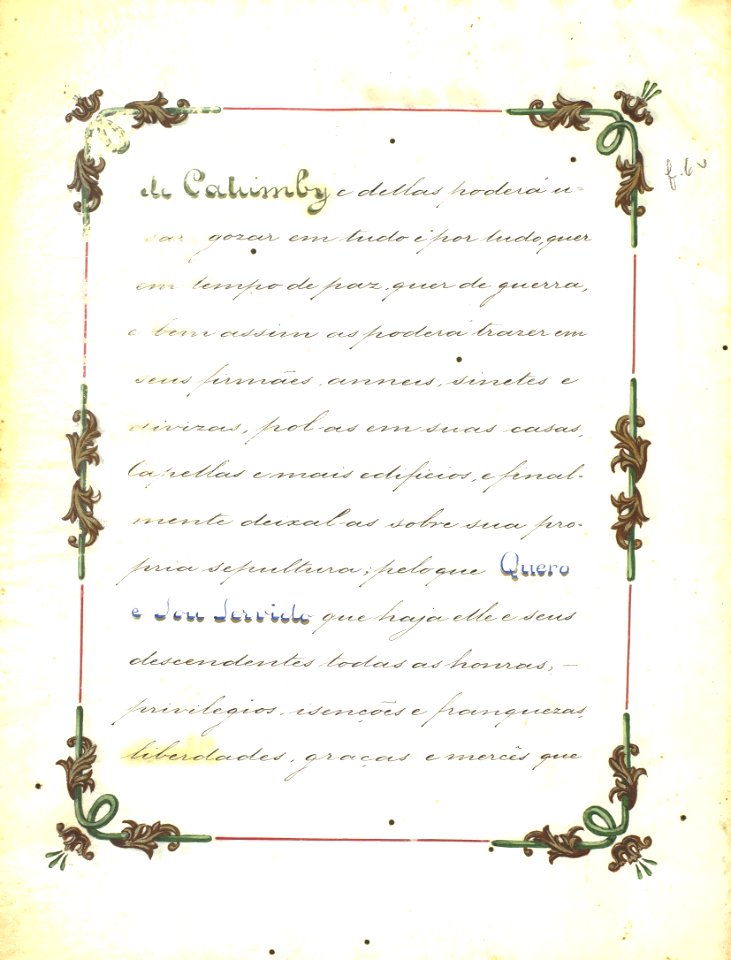 de Catumby e dellas poderá u=
sar, gozar em tudo e por tudo, quer
em tempo de paz, quer de guerra,
e bem assim as poderá trazer em
seus firmães, anneis, sinetes e
divizas, pol-as em suas casas,
Capellas e mais edificios, e final-
mente deixal-as sobre sua pro-
pria sepultura; pelo que Quero
e Sou Servido que haja elle e seus
descendentes todas as honras, —
privilegios, isenções e franquezas,
liberdades, graças e mercês que
f. 6 v